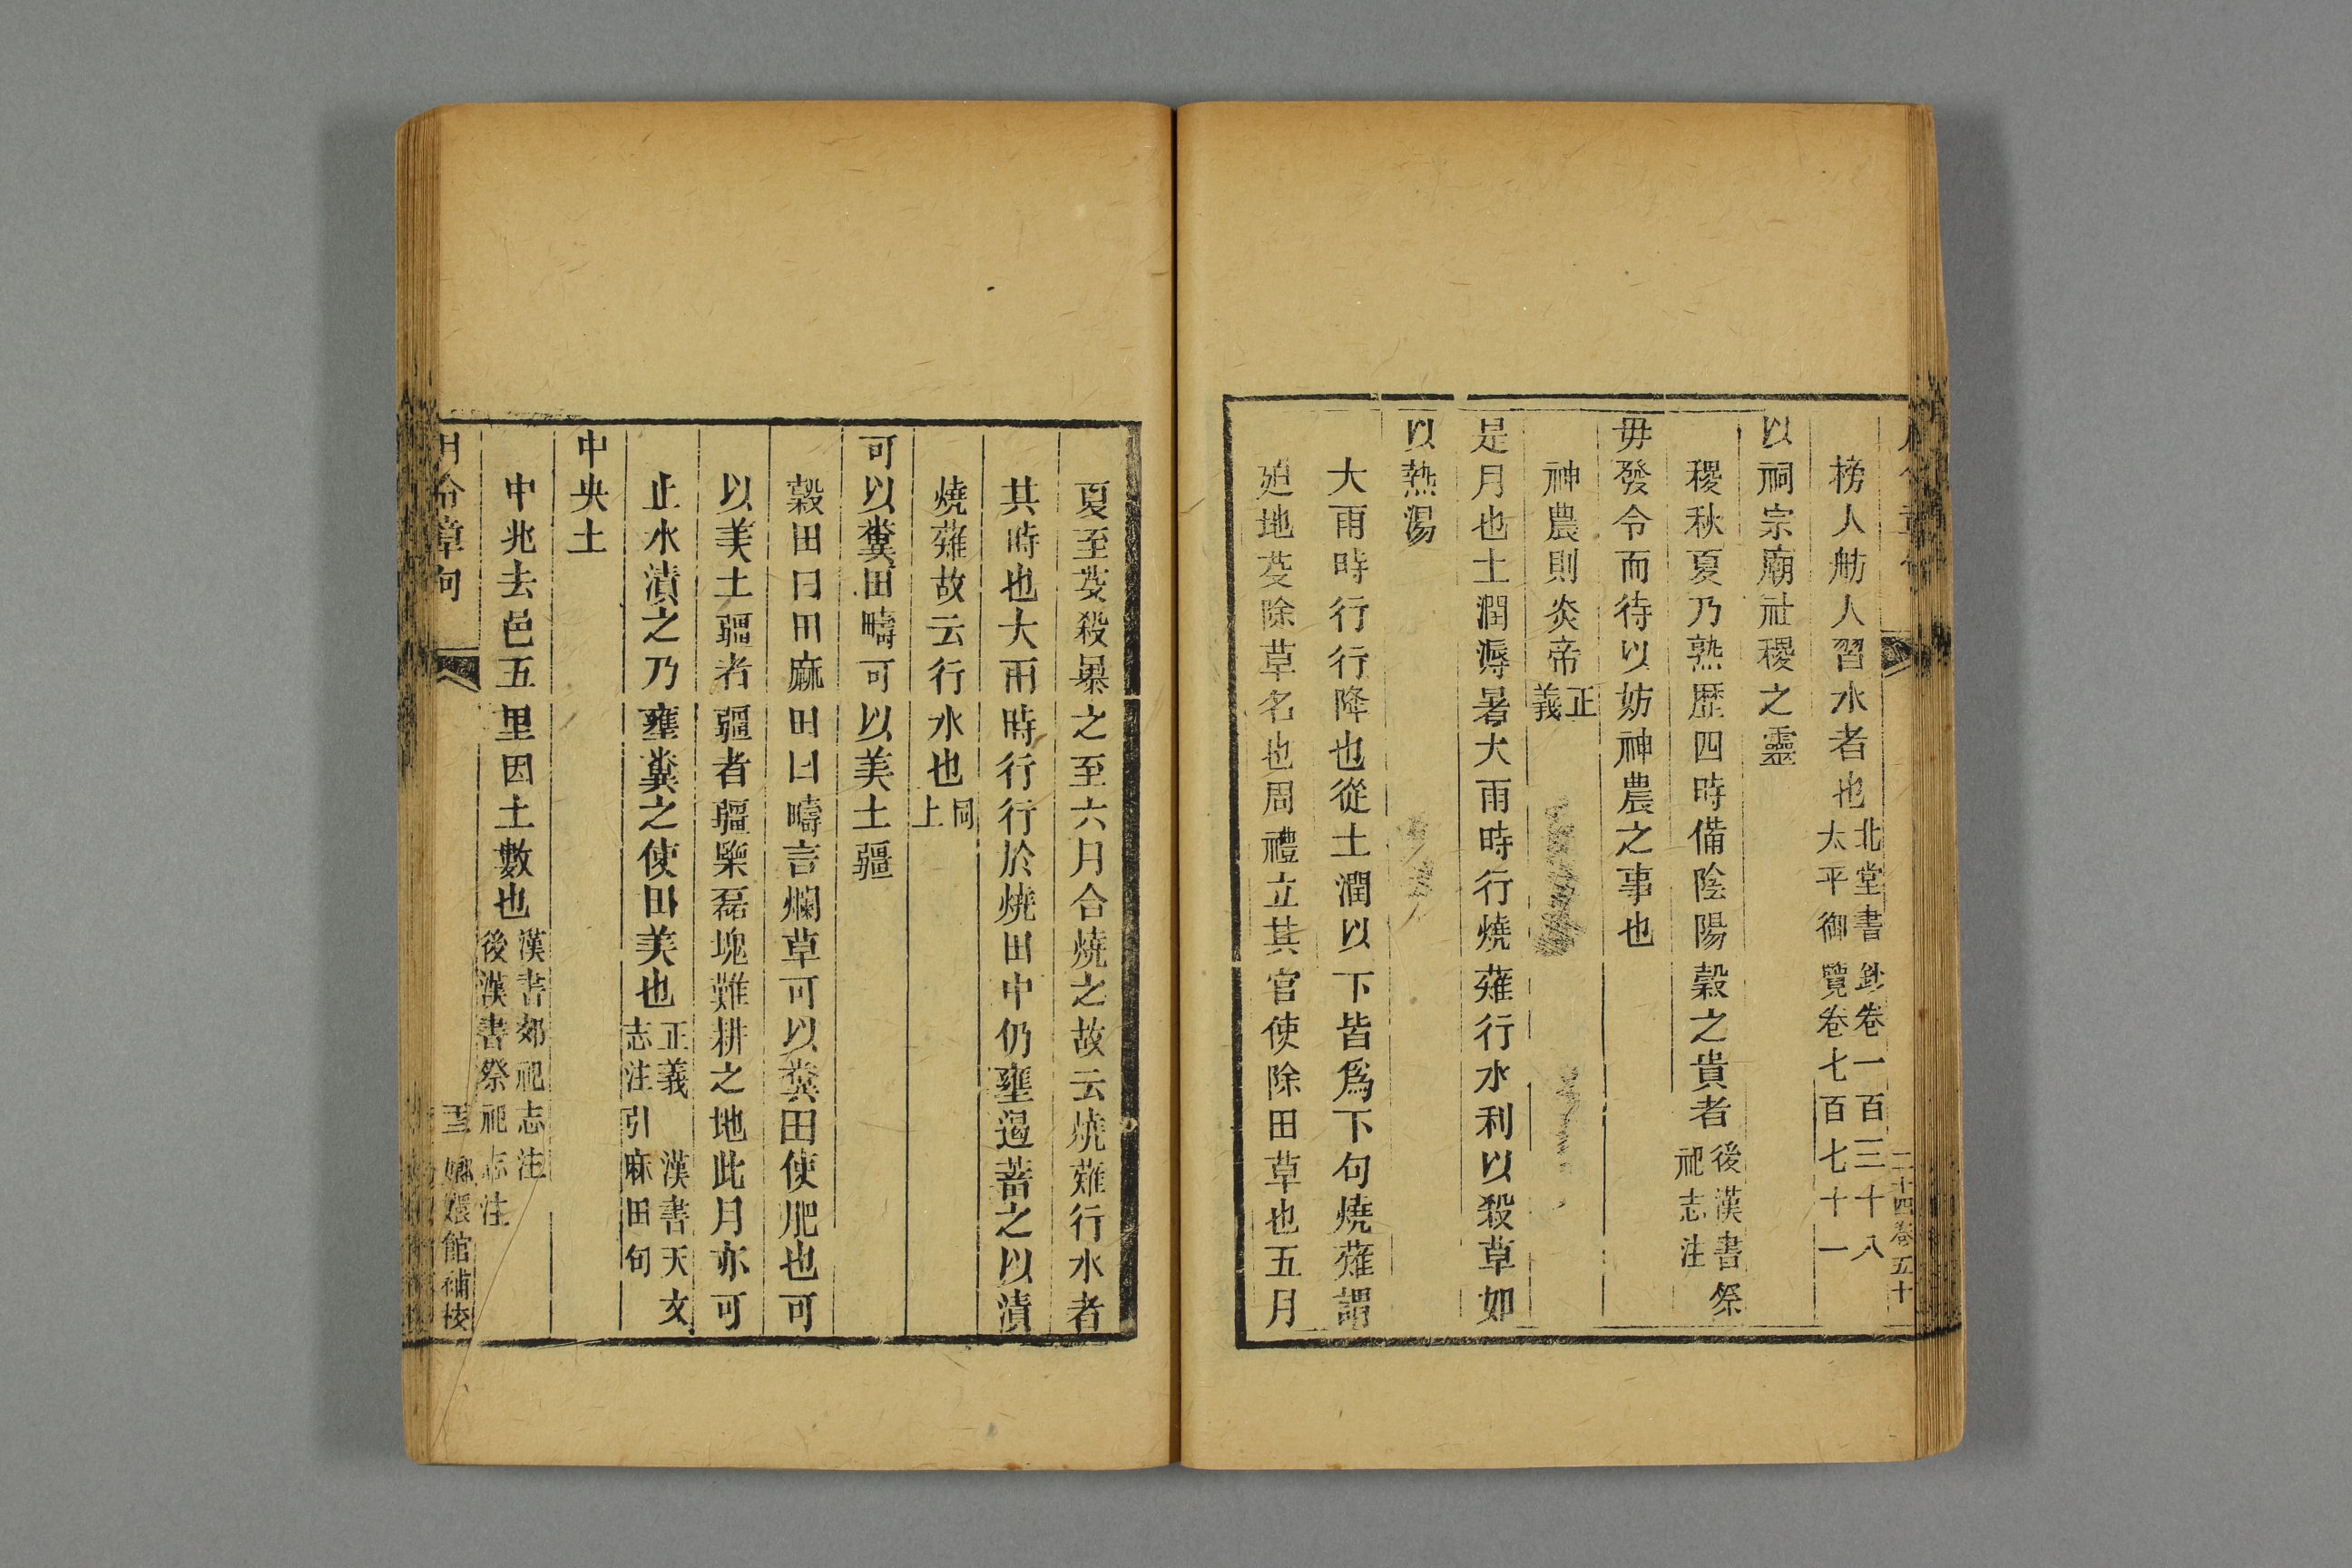 榜人舫人習水者也北堂書鈔卷一百三十八太平御覽卷七百七十一
以祠宗廟社稷之靈
稷秋夏乃熟歷四時備陰陽穀之貴者後漢書祭祀志注
毋發令而待以妨神農之事也
神農則炎帝正義
是月也土潤溽暑大雨時行燒薙行水利以殺草如
以熱湯
大雨時行行降也從土潤以下皆爲下句燒薙謂
迫地芟除草名也周禮立其官使除田草也五月
二十四卷五十
夏至芟殺暴之至六月合燒之故云燒薙行水者
其時也大雨時行行於燒田中仍壅遏蓄之以漬
燒薙故云行水也同上
可以糞田疇可以美土疆
穀田曰田麻田曰疇言爛草可以糞田使肥也可
以美土疆者疆者疆㯺磊塊難耕之地此月亦可
止水漬之乃壅糞之使田美也正義 漢書天文志注引麻田句
中央土
中兆去邑五里因土數也漢書郊祀志注後漢書祭祀志注
月令章句
嫏嬛館補校